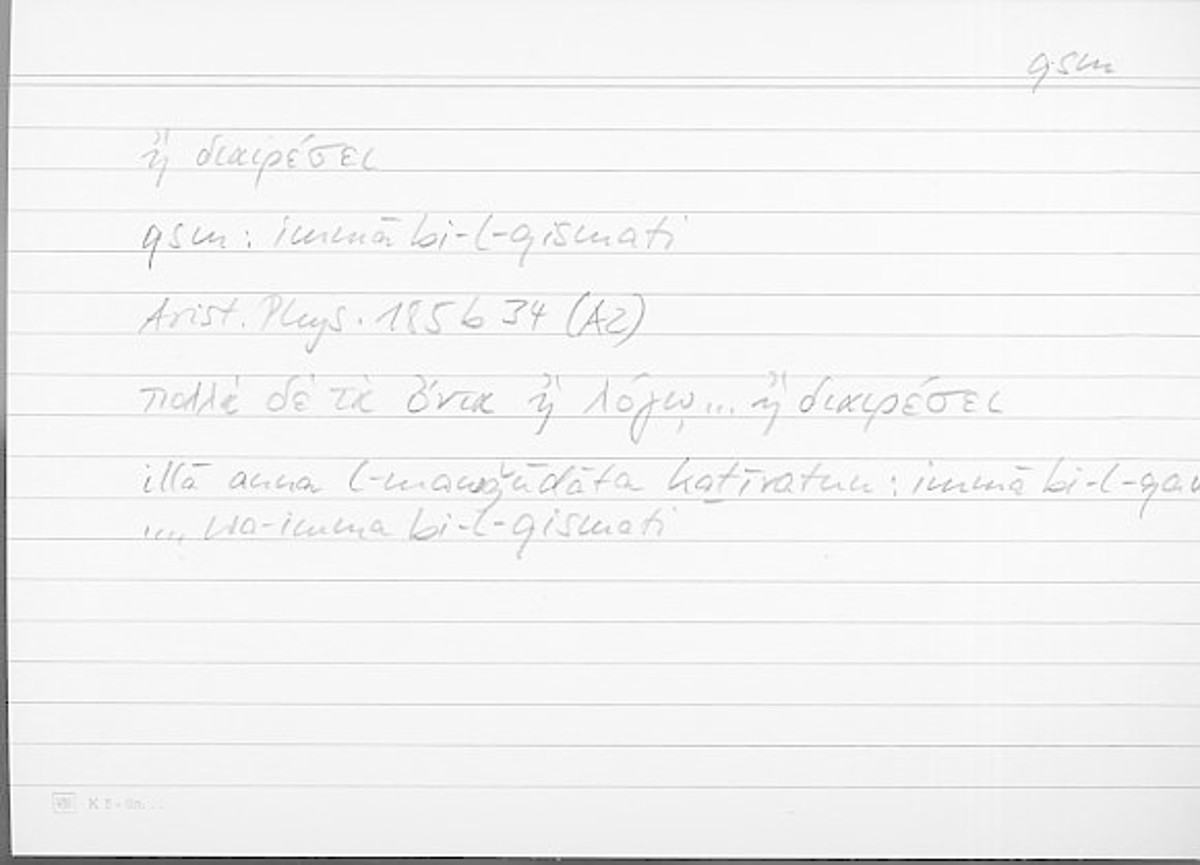 qsm
ἢ διαιρέσει
qsm: immā bi-l-qismati
Arist. Phys. 185 b 34 (A2)
πολλὰ δὲ τὰ ὄντα ἢ λόγῳ... ἢ διαιρέσει
illā anna l-mawǧūdāta kaṯīratun: immā bi-l-qaw
.... wa-imma bi-l-qismati